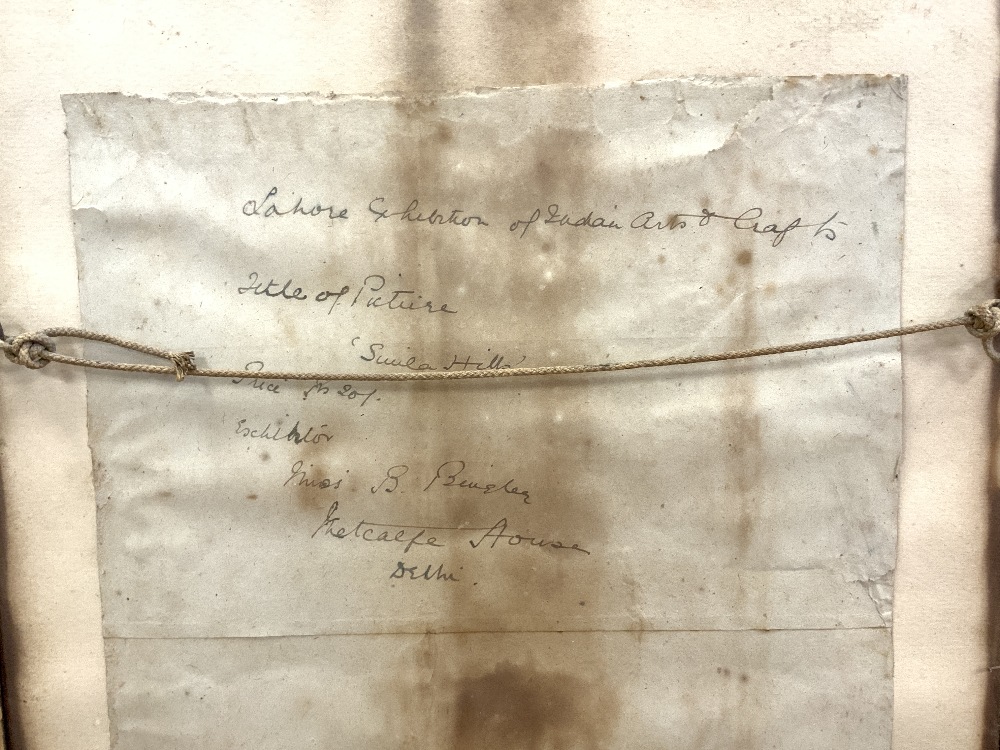 Lahore Exhibition of Indian Arts & Crafts
Title of Picture
'Simla Hills'
Price Rs 20/.
Exhibitor
Miss B. Bingley
Metcalfe House
Delhi.